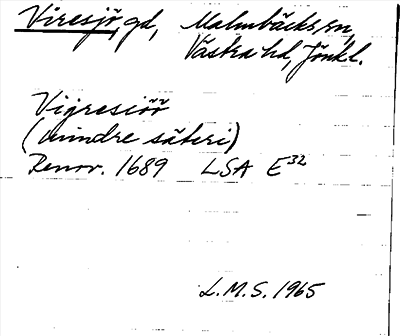 Viresjö, gd, Malmbäcks sn,
Västra hd, Jönk l.
Vigresiöö
(mindre säteri)
Renov. 1689 LSA E32
L.M.S. 1965